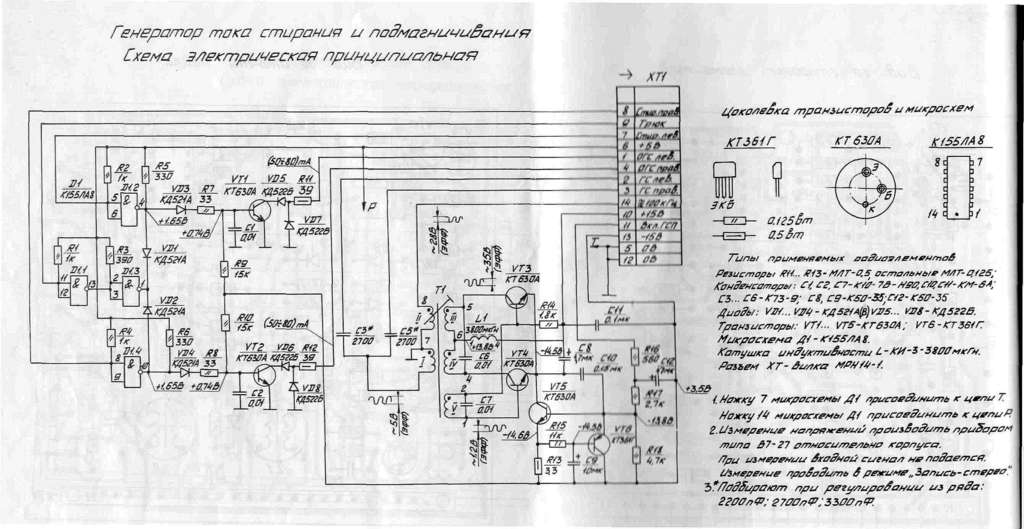 Генератор тока стирания и подмагничивания
Схема электрическая принципиальная
→ XT1
8 Стир.прав.
9 Трюк
7 Стир.лев.
6 +5В
1 ОГС лев.
4 ОГС прав.
2 ГС лев.
3 ГС прав.
14 ≈100кГц
10 +15В
11 Вкл.ГСП
13 -15В
5 0В
12 0В
D1
К155ЛА8
R2
1к
R5
330
D1.2
&
5
6
4
VD3
КД521А
+1.65В
R7
33
+0.74В
VT1
КТ630А
VD5
КД522Б
(50÷80)mA
R11
39
C1
0,01
VD7
КД522Б
P
T
R1
1к
R3
390
D1.1
&
11
12
13
D1.3
&
VD1
КД521А
VD2
КД521А
R9
15к
R10
15к
R4
1к
R6
330
D1.4
&
8
9
VD4
КД521А
+1.65В
R8
33
+0.74В
VT2
КТ630А
(50÷80)mA
VD6
КД522Б
R12
39
C2
0,01
VD8
КД522Б
C3*
2700
C5*
2700
~5В
(эфф)
~28В
(эфф)
~35В
(эфф)
~12В
(эфф)
T1
8
7
I
II
IV
V
5
6
4
2
1
L1
3800мкГн
+13.8В
C6
0,01
C7
0,01
VT3
КТ630А
VT4
КТ630А
R14
1.8к
C11
0.1мк
-14,5В
C8
47мк
C10
0.15мк
VT5
КТ630А
-14,6В
R15
11к
R13
33
-14.3В
C9
10мк
VT6
КТ361Г
R16
560
C12
47мк
+3.5В
R17
2,7к
-13.8В
R18
4,7к
Цоколевка транзисторов и микросхем
КТ361Г
КТ 630А
К155ЛА8
Э К Б
Э
Б
К
8
7
14
1
0,125 Вт
0,5 Вт
Типы применяемых радиоэлементов
Резисторы R11... R13-МЛТ-0,5 остальные МЛТ-0,125;
Конденсаторы: C1, C2, C7-К10-7В-Н90, C10, C11-КМ-5А;
C3... C6-К73-9; C8, C9-К50-35; C12-К50-35
Диоды: VD1... VD4-КД521А(В) VD5... VD8-КД522Б.
Транзисторы: VT1... VT5-КТ630А; VT6-КТ361Г.
Микросхема Д1-К155ЛА8.
Катушка индуктивности L-КИ-3-3800мкГн.
Разъем XT-Вилка МРН14-1.
1. Ножку 7 микросхемы Д1 присоединить к цепи Т.
Ножку 14 микросхемы Д1 присоединить к цепи Р.
2. Измерение напряжений производить прибором
типа В7-27 относительно корпуса.
При измерении входной сигнал не подается.
Измерение проводить в режиме „Запись-стерео."
3.* Подбирают при регулировании из ряда:
2200пФ; 2700пФ; 3300пФ.